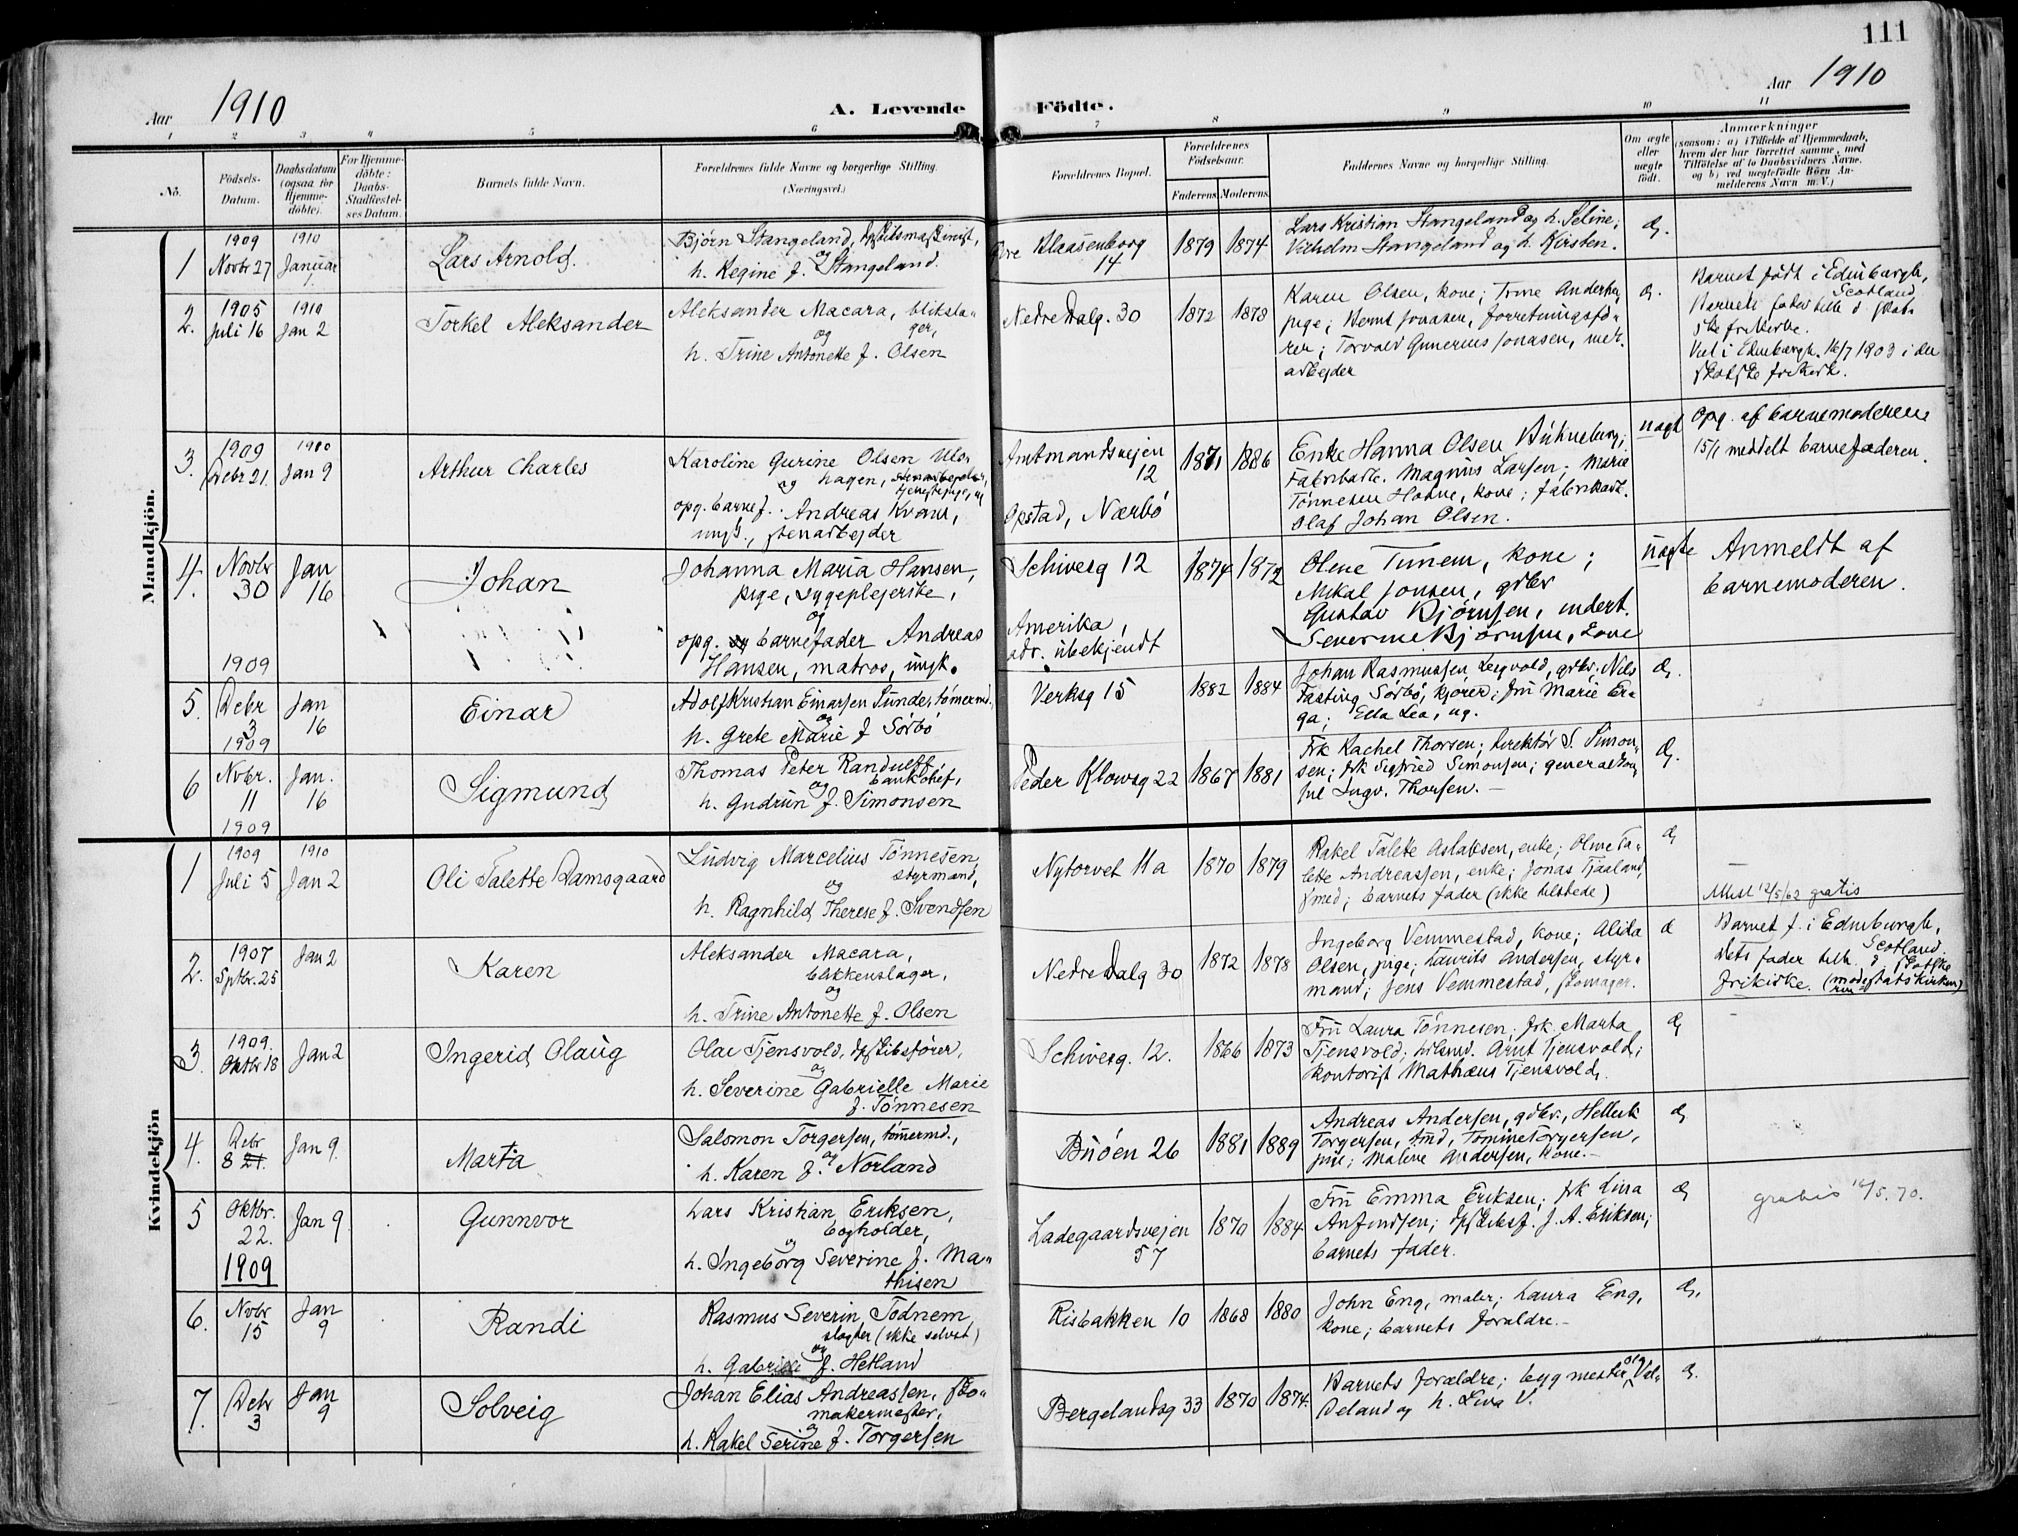 111
Aar 1910
A. Levende Födte.
Aar 1910
1 2 3 4 5 6 7 8 9 10 11
No.
Födsels-
Datum.
Daabsdatum
(ogsaa for
Hjemme-
döbte).
For Hjemme-
döbte:
Daabs-
Stadfæstel-
ses Datum.
Barnets fulde Navn.
Forældrenes fulde Navne og borgerlige Stilling.
(Næringsvei.)
Forældrenes Bopæl.
Forældrenes
Födselsaar.
Faderens Moderens
Faddernes Navne og borgerlige Stilling.
Om ægte
eller
uægte
födt.
Anmærkninger
(saasom: a) i Tilfælde af Hjemmedaab,
hvem der har forrettet samme, med
Tilföielse af to Daabsvidners Navne,
og b) ved uægtefödte Börn An-
melderens Navn m. V.)
Mandkjön.
1
1909
Novbr 27
1910
Januar
1
Lars Arnold.
Bjørn Stangeland, dpskibsmaskinist,
og
h. Regine f. Stangeland.
Øvre Klaasenborg
14
1879 1874
Lars Kristian Stangeland og h. Seline;
Vilhelm Stangeland og h. Kirsten.
Æ.
2.
1905
Juli 16
1910
Jan 2
Torkel Aleksander
Aleksander Macara, bliksla-
ger,
og
h. Trine Antonette f. Olsen
Nedre Dalg. 30
1872 1878
Karen Olsen, kone; Trine
pige; Bernt Jonasen, forretningsfø-
rer; Torvald Gunerius Jonasen,
arbejder
Æ.
Barnet født i Edinbourgh,
Scotland
Barnets fader tilh. d. skot-
ske frikirke.
Viet i Edinbourgh 16/7 1903 i den
skotske frikirke.
3.
1909
Debr 21.
1910
Jan 9
Arthur Charles
Karoline Gurine Olsen
hagen,
og tjenestepige,
opg. barnef. Andreas Kvam,
ungk., stenarbejder
Amtmandsvejen
12
Opstad, Nærbö
1871 1886
Enke Hanna Olsen
Fabrikarb. Magnus Larsen; Marie
Tønnesen, kone; fabrikarb.
Olaf Johan Olsen.
uægt
Opg. af barnemoderen
15/1 meddelt barnefaderen.
4.
Novbr
30
Jan
16
Johan
Johanna Maria Hansen,
pige, sygeplejerske,
og
opg. barnefader Andreas
Hansen, matros, ungk.
Schivesg 12
Amerika,
adr. ubekjendt
1874 1872
Olene Tunem, kone;
Mikal Jonsen, gdbr
Gustav Bjørnsen,
Severine Bjørnsen, kone
uægte
Anmeldt af
barnemoderen.
5.
1909
Debr
3
Jan
16
Einar
Adolf Kristian Einarsen Tunde, tømermd.
og
h. Grete Marie f Sörbö
Verksg 15
1882 1884
Johan Rasmussen Legvold, gdbr; Nils
Tasting Sørbö, kjører; fru Marie
Ella Lea, ug.
Æ.
6
1909
Nvbr.
11
Jan.
16
Sigmund
Thomas Peter Randulff,
bankchef,
og
h. Gudrun f. Simonsen
Peder Klowsg 22
1867 1881
Frk Rachel Thorsen; direktör S. Simon-
sen; frk Sigfried Simonsen; generalkon-
sul Ingv. Thorsen.
Æ.
1909
Kvindekjön
1
1909
Juli 5
1910
Jan 2
Oli Talette Damsgaard
Ludvig Marcelius Tönnesen,
styrmand,
og
h. Ragnhild Therese f. Svendsen
Nytorvet 11a
1870 1879
Rakel Talete Aslaksen, enke; Oline Ta-
lette Andreassen, enke; Jonas Tjaaland,
smed; barnets fader (ikke tilstede)
Æ
Attest 12/5/62 gratis
2.
1907
Sptbr. 25
Jan 2
Karen
Aleksander Macara,
blikkenslager,
og
h. Trine Antonette f. Olsen
Nedre Dalg 30
1872 1878
Ingeborg Vemmestad, kone; Alida
Olsen, pige; Laurits Andersen, styr-
mand; Jens Vemmestad, skomager.
Æ
Barnet f. i Edinburgh,
Scotland.
Dets fader tilh. d. skotske
frikirke. (moderen statskirken)
3.
1909.
Oktbr 18
Jan 2
Ingerid Olaug
Olai Tjensvold, dpskibsfører,
og
h. Severine Gabrielle Marie
f. Tönnesen
Schivesg. 12.
1866 1873
Fru Laura Tönnesen; frk. Marta
Tjensvold; Arnt Tjensvold;
kontorist Mathæus Tjensvold.
Æ
4.
Debr
8 21.
Jan 9.
Marta
Salomon Torgersen, tømermd.,
og
h. Karen f. Norland
Buöen 26
1881 1889
Andreas Andersen, gdbr.,
Torgersen, Tomine Torgersen,
pige; Maline Andersen, kone.
Æ
5
Oktbr.
22.
1909
Jan 9.
Gunnvor
Lars Kristian Eriksen,
bogholder,
og
h. Ingeborg Severine f. Ma-
thisen
Ladegaardsvejen
57
1870 1884
Fru Emma Eriksen; frk Lina
Anfindsen; dpskibsf. J. A. Eriksen;
barnets fader.
Æ
gratis 12/5. 70.
6.
Nvbr
15
Jan
9
Randi
Rasmus Severin Todnem,
slagter (ikke selvst)
og
h. Gabrielle f. Hetland
Risbakken 10
1868 1880
John Eng, maler; Laura Eng,
kone; barnets forældre.
Æ.
7.
Debr
3
Jan
9
Solveig
Johan Elias Andreassen, sko-
makermester,
og
h. Rakel Serine f. Torgersen
Bergelandsg 33
1870 1874.
Barnets forældre; bygmester Vel-
deland og h. Lina V.
Æ.